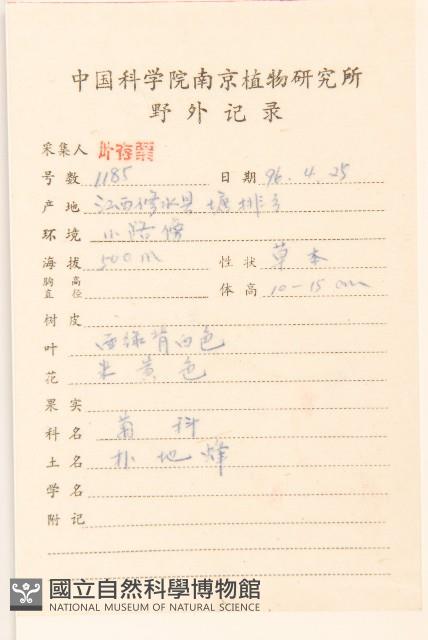 中国科学院南京植物研究所
野外记录
采集人 叶存粟
号数 1185 日期 96.4.25
产地 江西修水县 塘排
环境 小路傍
海拔 500m 性状 草本
胸高直径 体高 10-15 cm
树皮
叶 面绿背白色
花 米黄色
果实
科名 菊科
土名 朴地
学名
附记
國立自然科學博物館
NATIONAL MUSEUM OF NATURAL SCIENCE